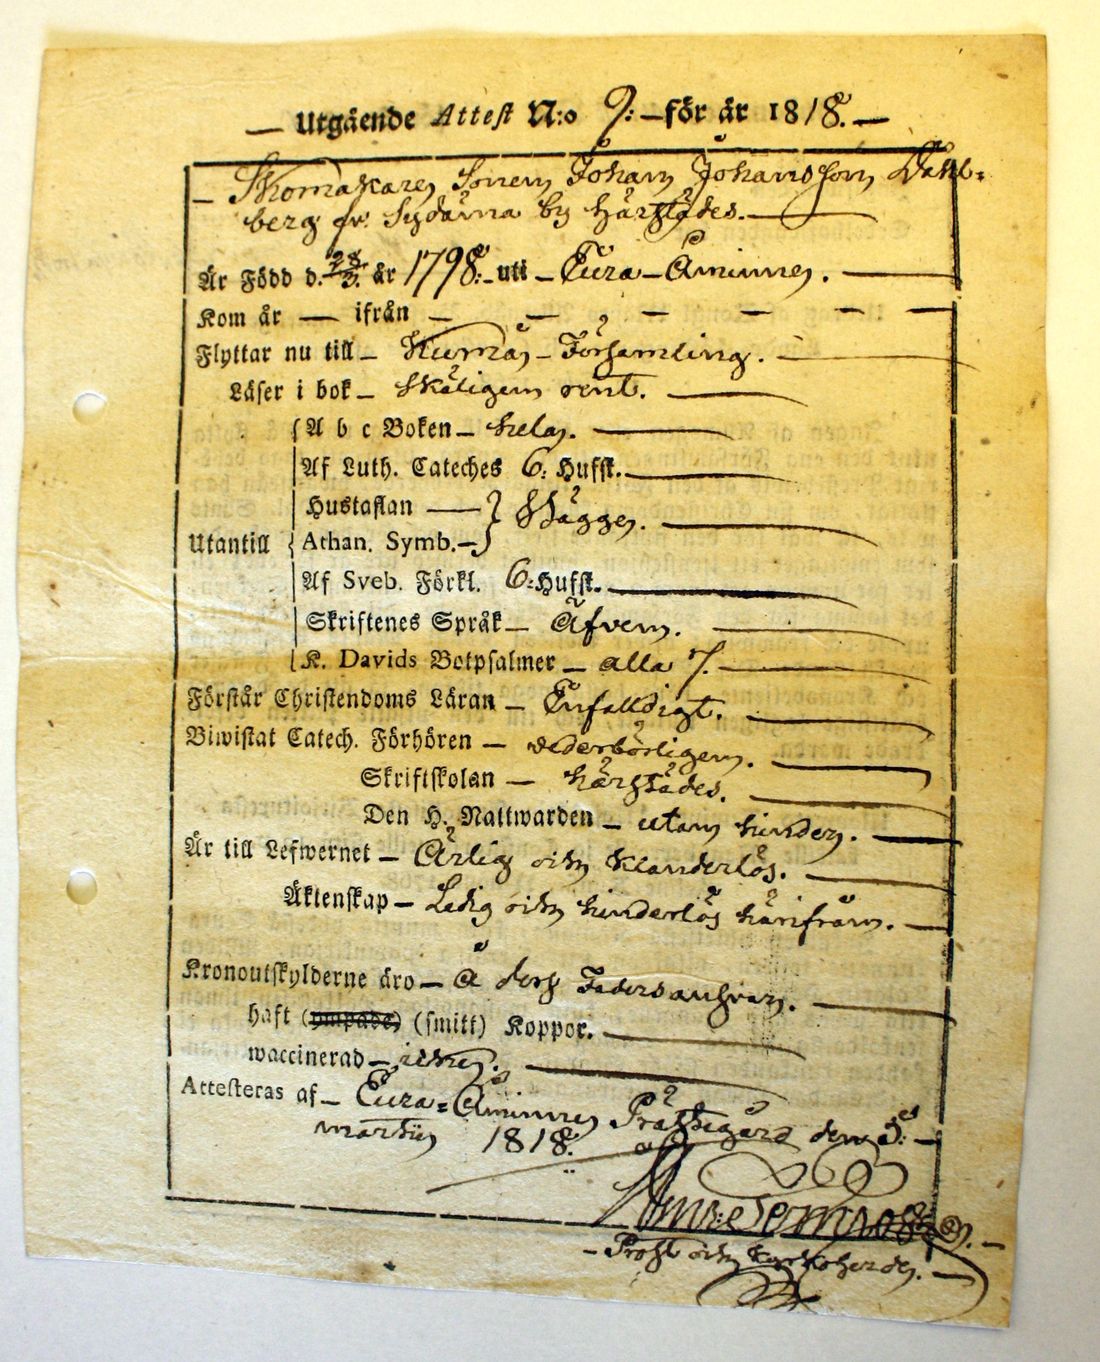 — Utgående Attest N:o 9: — för år 1818. —
— Skomakare Sonen Johan Johansson Dahl=
berg fr. Sydänma by härstädes. —
Är Född d. 28/3. år 1798: uti — Eura-Åminne. —
Kom år — ifrån — — — — — —
Flyttar nu till — Kumå — Församling. —
Läser i bok — skäligen rent. —
A b c Boken — hela. —
Af Luth. Cateches 6: Hufst. —
Hustaflan — } Bägge. —
Utantill { Athan. Symb. —
Af Sveb. Förkl. 6: Hufst. —
Skriftenes Språk — Äfven. —
K. Davids Botpsalmer — alla 7. —
Förstår Christendoms Läran — Enfalldigt. —
Biwistat Catech. Förhören — vederbörligen. —
Skriftskolan — härstädes. —
Den H. Nattwarden — utan hinder. —
Är till Lefwernet — Ärlig och klanderlös. —
Äktenskap — Ledig och hinderlös härifrån. —
Kronoutskylderne äro — å dess Faders ansvar. —
haft (ympade) (smitt) Koppor. —
waccinerad — icke. —
Attesteras af — Eura=Åminne Prästegård den 5: —
martii 1818.
— Prost och Kyrkoherde. —